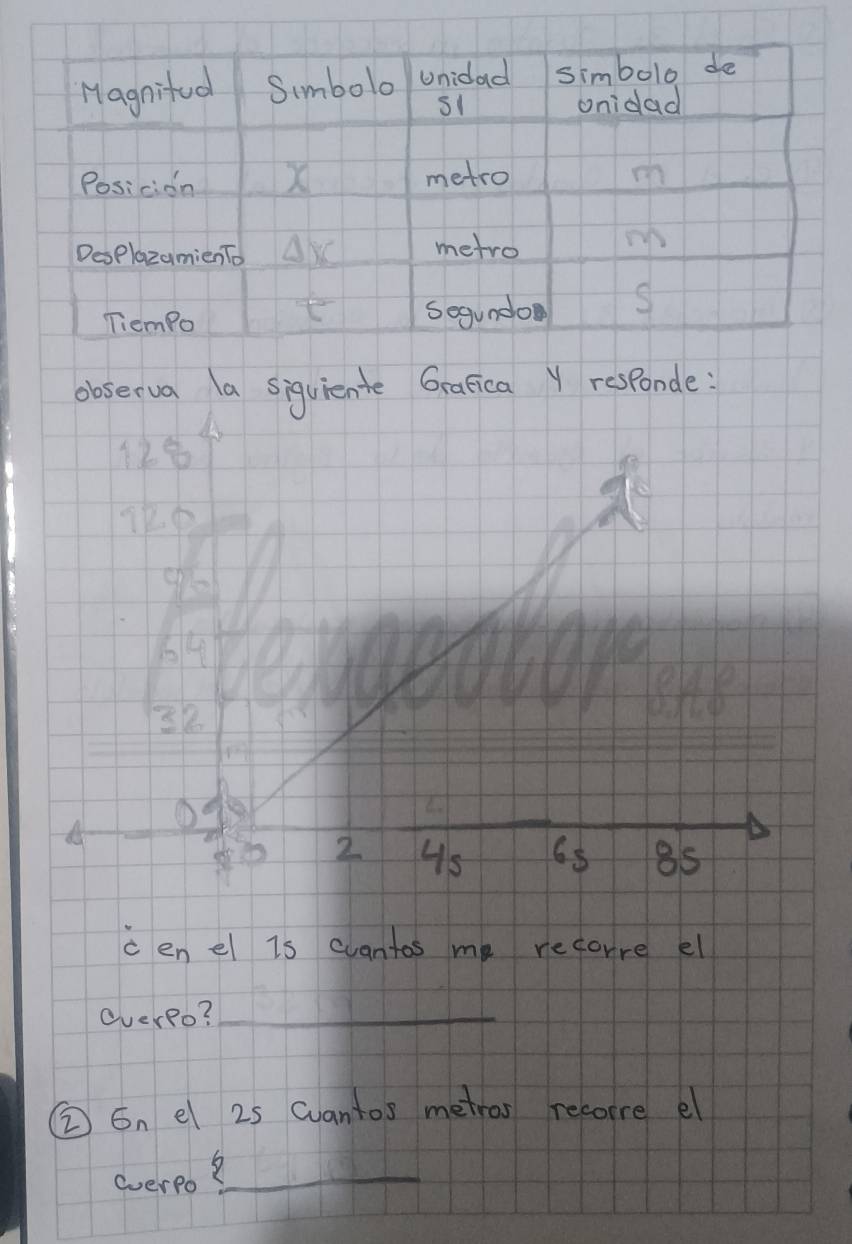 Magnitud Simbolo unidad simbolo de
SI unidad
Posición X metro m
Desplazamiento Δx metro m
Tiempo t segundo s
observa la siguiente Grafica y responde:
128
120
96
64
32
0
2 4s 6s 8s
¿ en el 1s cuantos m recorre el
cuerpo?
② En el 2s cuantos metros recorre el
cuerpo?